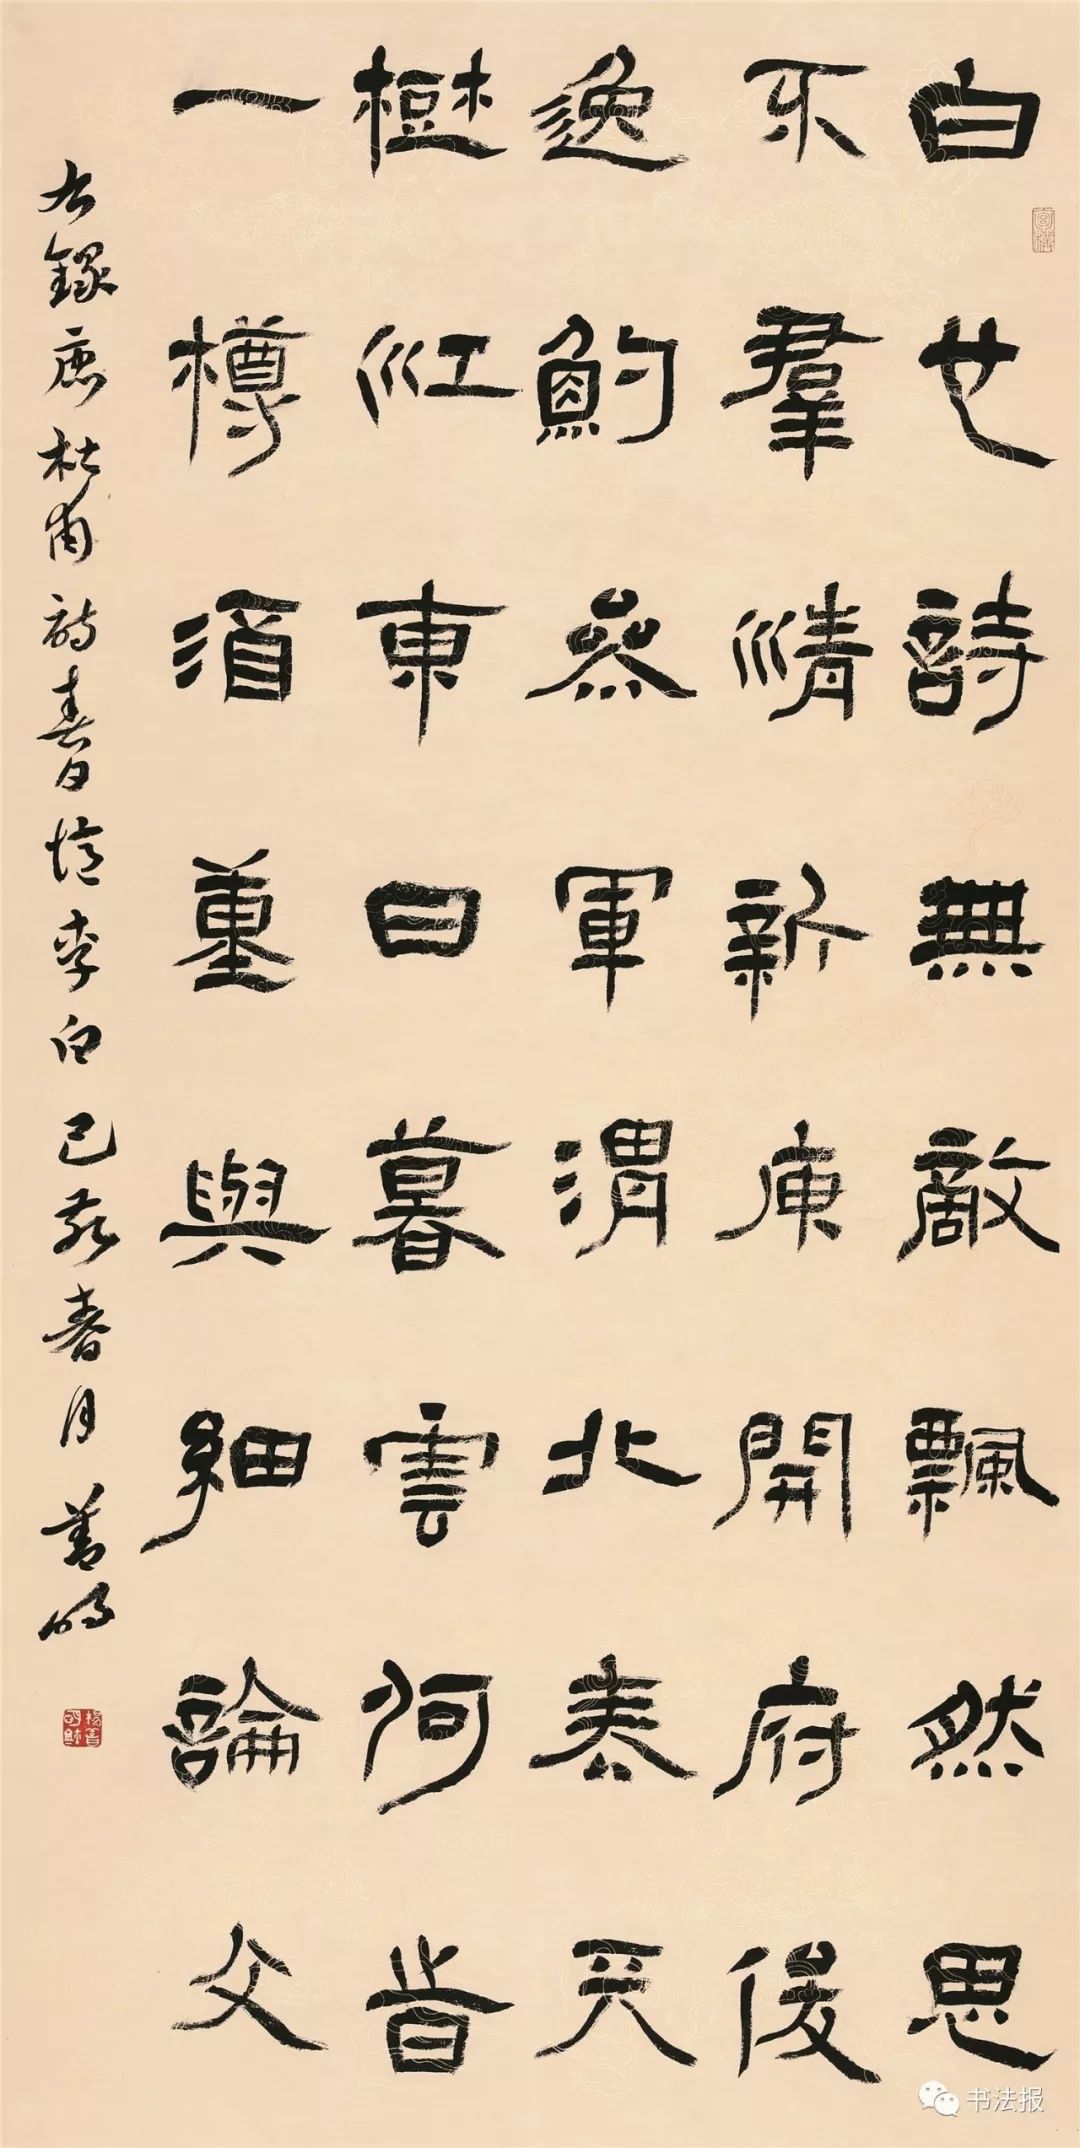 白也詩無敵飄然思
不羣清新庾開府後
逸鮑參軍渭北春天
樹江東日暮雲何旹
一樽酒重與細論文
右錄唐杜甫詩春日憶李白 己亥春月 善明
书法报